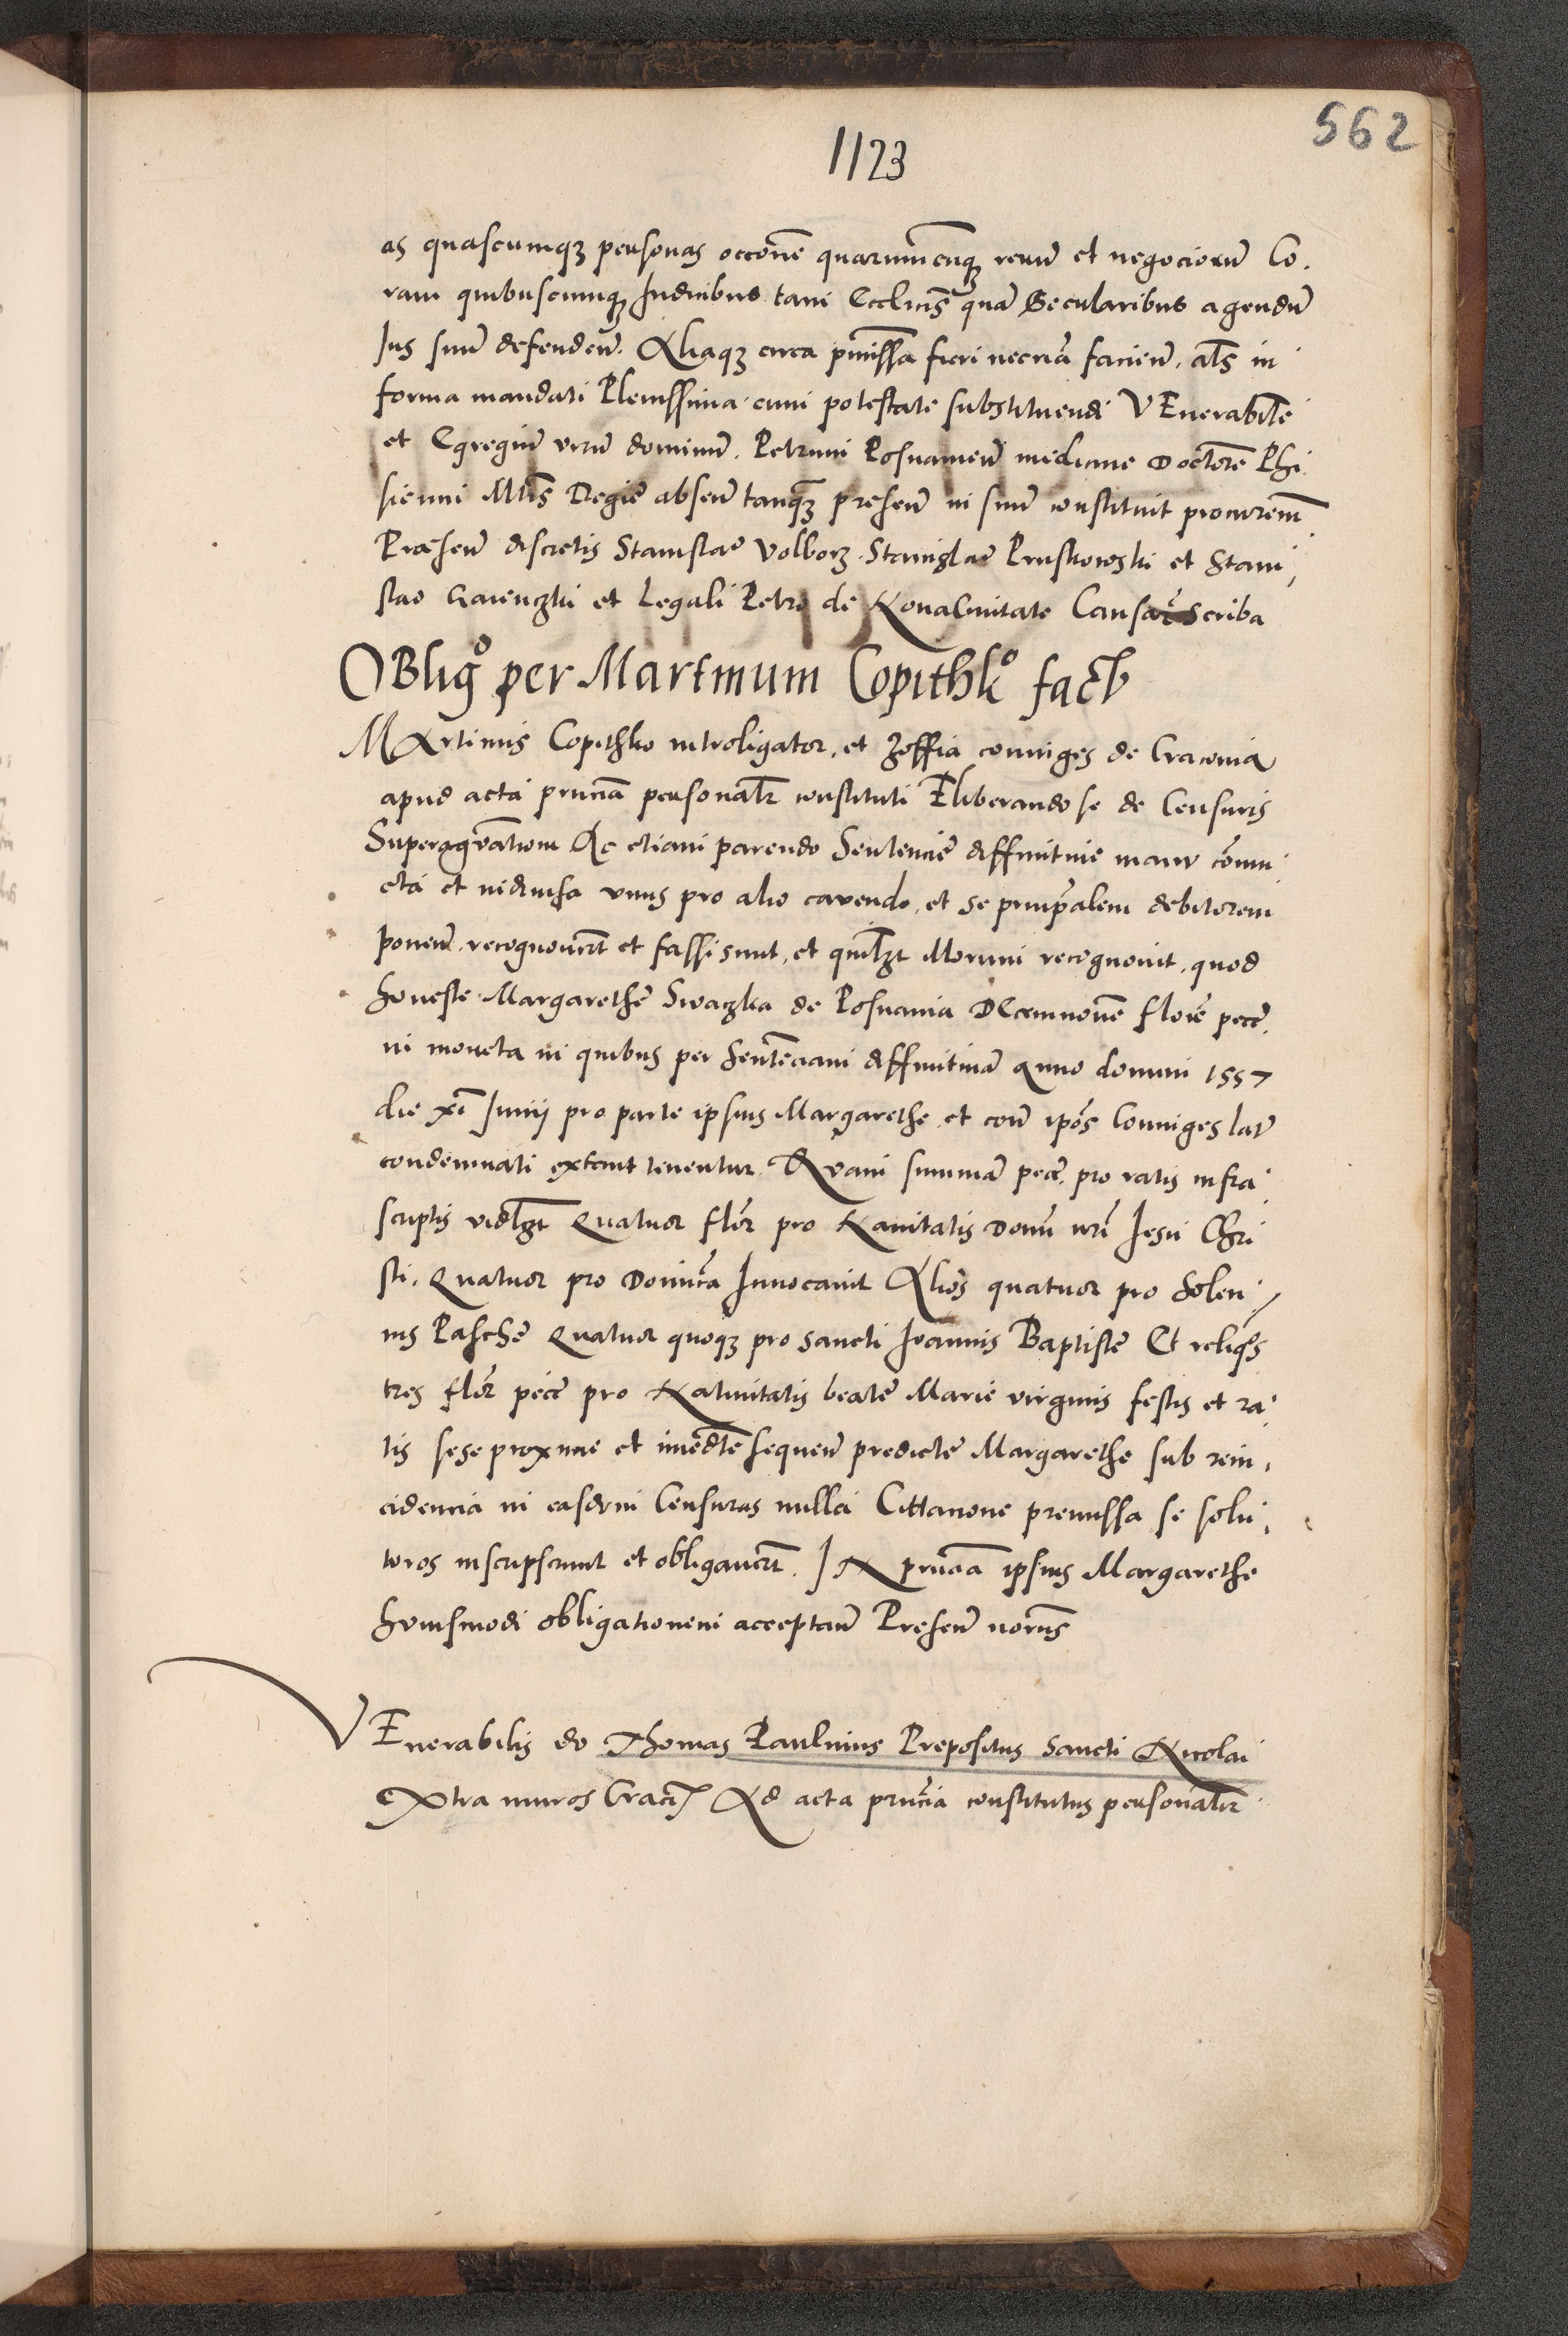 562
1123
as quascumqꝫ personas occone͂ quarumcunqꝫ reru͂ et negocioru͂ Co.
ram quibuscumqꝫ Iudicibus tam Eccl͂icis qua͂ Secularibus agendu͂
Ius suu͂ defendeñ. Aliaqꝫ circa p͂missa fieri necria͂ facieñ. al͂s in
forma mandati Plenissima cum potestate substituendi VEnerabile͂
et Egregiu͂ viru͂ dominu͂. Petrum Posnanieñ medicine Doctore͂ Phi
sicum Mt͂is Regie abseñ tanqꝫ preseñ in suu͂ constituit procurem͂
Præseñ discretis Stanislao Volborz. Stanislao Pruskowski et Stani,
slao Gaienczki et Legali Petro de Nova Civitate Causar͂ Scriba
OBligo per Martinum Copithko fact
MArtinus Copithko introligator, et Zoffia coniuges de Cracovia
apud acta pn͂cia personalr͂ constituti Eliberando se de Censuris
Superaggrãtiom Ac etiam parendo Sentencie diffinitive manu co͂niu
cta et indivisa unus pro alio cavendo, et se principalem debitorem
poneñ. recognoverũt et fassi sunt, et quil͂zt illorum recognovit, quod
honeste Margarethe Swaczka de Posnania DEcemnovem floreñ pecc͂.
in moneta in quibus per sentenciam diffinitiva͂ Anno domini 1557
die xi Iunij pro parte ipsius Margarethe, et con͂ ipos Coniuges lat͂
condemnati extant tenentur. QVam summa͂ pecc͂. pro ratis infra
scriptis vidl͂zt Quatuor flor͂ pro Navitatis Domi͂ nr͂i Iesu Chri
sti. Quatuor pro Dominica Invocavit Alios quatuor pro Solen
nis Pasche Quatuor quoqꝫ pro sancti Ioannis Baptiste Et reliqos
tres flor͂ pecc͂ pro Nativitatis beate Marie virginis festis et ra
tis sese proxime et im͂edte sequeñ predicte Margarethe sub rein,
cidencia in easdem Censuras nulla Cittacione premissa se solu,
turos inscripserunt et obligaverũt. IN pn͂cia ipsius Margarethe
huiusmodi obligationem acceptañ Preseñ notariis
VEnerabilis do Thomas Paulinus Prepositus Sancti Nicolai
Extra muros Crac͂ Ad acta pn͂cia constitutus personalr͂